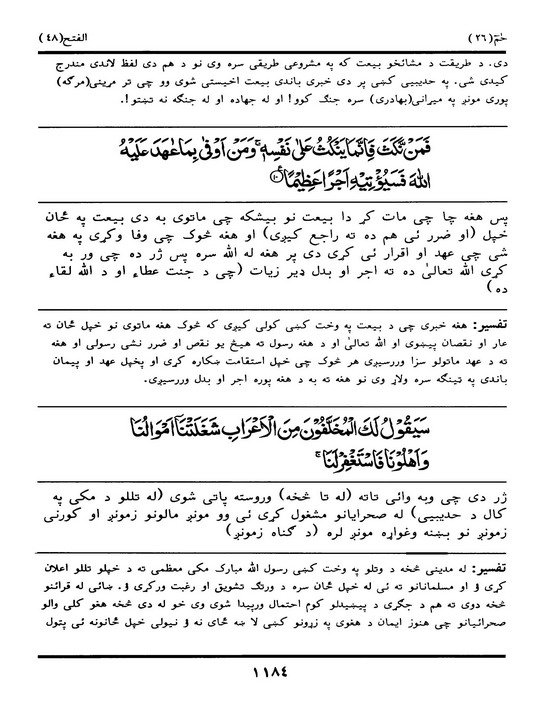 حٰمٓ(٢٦) الفتح(٤٨)
دی. د طریقت د مشائخو بیعت که په مشروعي طریقي سره وي نو د هم دی لفظ لاندی مندرج
کیدی شي. په حدیبیي کښي پر دی خبري باندی بیعت اخیستی شوی وو چي تر مړیني(مرګه)
پوري مونږ په میړاني(بهادری) سره جنګ کوو! او له جهاده او له جنګه نه تښتو!.
فَمَنْ نَّكَثَ فَاِنَّمَا یَنْكُثُ عَلٰی نَفْسِهٖ ۚ وَمَنْ اَوْفٰی بِمَا عٰهَدَ عَلَیْهُ
اللّٰهَ فَسَیُؤْتِیْهِ اَجْرًا عَظِیْمًا ۝۱۰
پس هغه چا چي مات کړ دا بیعت نو بیشکه چي ماتوي به دی بیعت په ځان
خپل (او ضرر ئی هم ده ته راجع کیږي) او هغه څوک چي وفا وکړي په هغه
شي چي عهد او اقرار ئی کړی دی پر هغه له الله سره پس ژر ده چي ور به
کړي الله تعالیٰ ده ته اجر او بدل ډیر زیات (چي د جنت عطاء او د الله لقاء
ده)
تفسیر: هغه خبري چي د بیعت په وخت کښي کولی کیږي که څوک هغه ماتوي نو خپل ځان ته
عار او نقصان پیښوي او الله تعالیٰ او د هغه رسول ته هیڅ یو نقص او ضرر نشي رسولی او هغه
ته د عهد ماتولو سزا وررسیږي هر څوک چي خپل استقامت ښکاره کړي او پخپل عهد او پیمان
باندي په ټینګه سره ولاړ وي نو هغه ته به د هغه پوره اجر او بدل وررسیږي.
سَیَقُوْلُ لَكَ الْمُخَلَّفُوْنَ مِنَ الْاَعْرَابِ شَغَلَتْنَاۤ اَمْوَالُنَا
وَاَهْلُوْنَا فَاسْتَغْفِرْ لَنَا ۚ
ژر دی چي وبه وائي تاته (له تا څخه) وروسته پاتي شوي (له تللو د مکي په
کال د حدیبیي) له صحرایانو مشغول کړي ئی وو مونږ مالونو زمونږ او کورني
زمونږ نو بښنه وغواړه مونږ لره (د ګناه زمونږ)
تفسیر: له مدیني څخه د وتلو په وخت کښي رسول الله مبارک مکي معظمي ته د خپلو تللو اعلان
کړی ؤ او مسلمانانو ته ئی له خپل ځان سره د ورتګ تشویق او رغبت ورکړی ؤ. ښائي له قرائنو
څخه دوی ته هم د جګړی د پیښیدلو کوم احتمال ورپیدا شوی وي خو له دی څخه هغو کلي والو
صحرائیانو چي هنوز ایمان د هغوی په زړونو کښي لا ښه ځای نه ؤ نیولی خپل ځانونه ئی پټول
١١٨٤